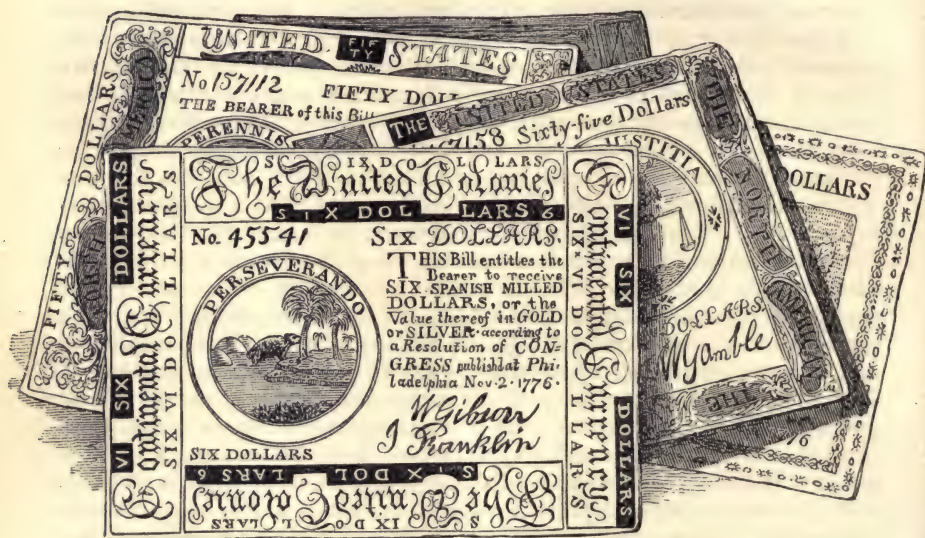 UNITED FIF
TY STATES
No 157112 FIFTY DOL
THE BEARER of this Bill
PERENNIS
FIFTY DOLLARS
NORTH AMERICA
THE UNITED STATES
7158 Sixty-five Dollars
JUSTITIA
DOLLARS.
WGamble
THE NORTH AMERICAN
THE
DOLLARS
76
SIX DOLLARS
The United Colonies
SIX DOLLARS 6
No. 45541 SIX DOLLARS.
THIS Bill entitles the
Bearer to receive
SIX SPANISH MILLED
DOLLARS, or the
Value thereof in GOLD
or SILVER according to
a Resolution of CON=
GRESS publishd at Phi-
ladelphia Nov. 2. 1776.
WGibson
J Franklin
PERSEVERANDO
SIX DOLLARS
VI SIX DOLLARS
Continental Currency
SIX VI DOLLARS
VI SIX DOLLARS
Continental Currency
SIX VI DOLLARS
SIX DOLLARS 6
The United Colonies
SIX DOLLARS